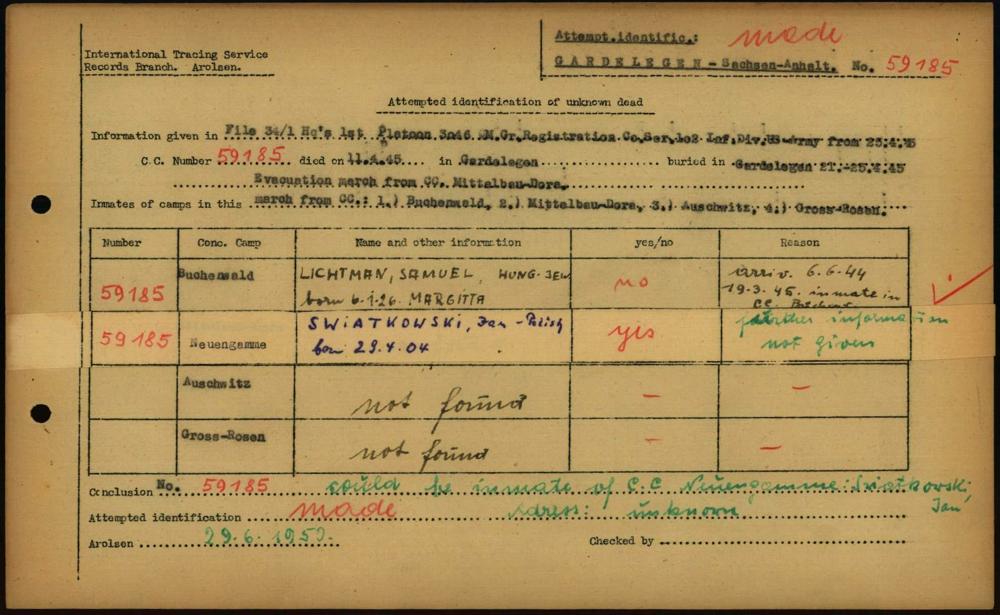 International Tracing Service
Records Branch. Arolsen.
Attempt.identific.: made
GARDELEGEN - Sachsen-Anhalt. No. 59185
Attempted identification of unknown dead
Information given in File 34/1 Hq's 1st Platoon 3046 QM.Gr.Registration.Co.Ser.102 Inf.Div.US-Army from 23.4.45
C.C. Number 59185 died on 11.4.45 in Gardelegen buried in Gardelegen 21.-25.4.45
Evacuation march from CC. Mittelbau-Dora.
Inmates of camps in this march from CC.: 1.) Buchenwald, 2.) Mittelbau-Dora, 3.) Auschwitz, 4.) Gross-Rosen.
Number Conc. Camp Name and other information yes/no Reason
59185 Buchenwald LICHTMAN, SAMUEL, HUNG-JEW no arriv. 6.6.44
born 6.1.26. MARGITTA 19.3.45. inmate in
CC.
59185 Neuengamme SWIATKOWSKI, Jan - Polish yes further information
born 29.4.04 not given
Auschwitz not found - -
Gross-Rosen not found - -
Conclusion No. 59185 could be inmate of C.C Neuengamme: Swiatkowski,
Jan
Attempted identification made Adress: unknown
Arolsen 29.6.1950. Checked by